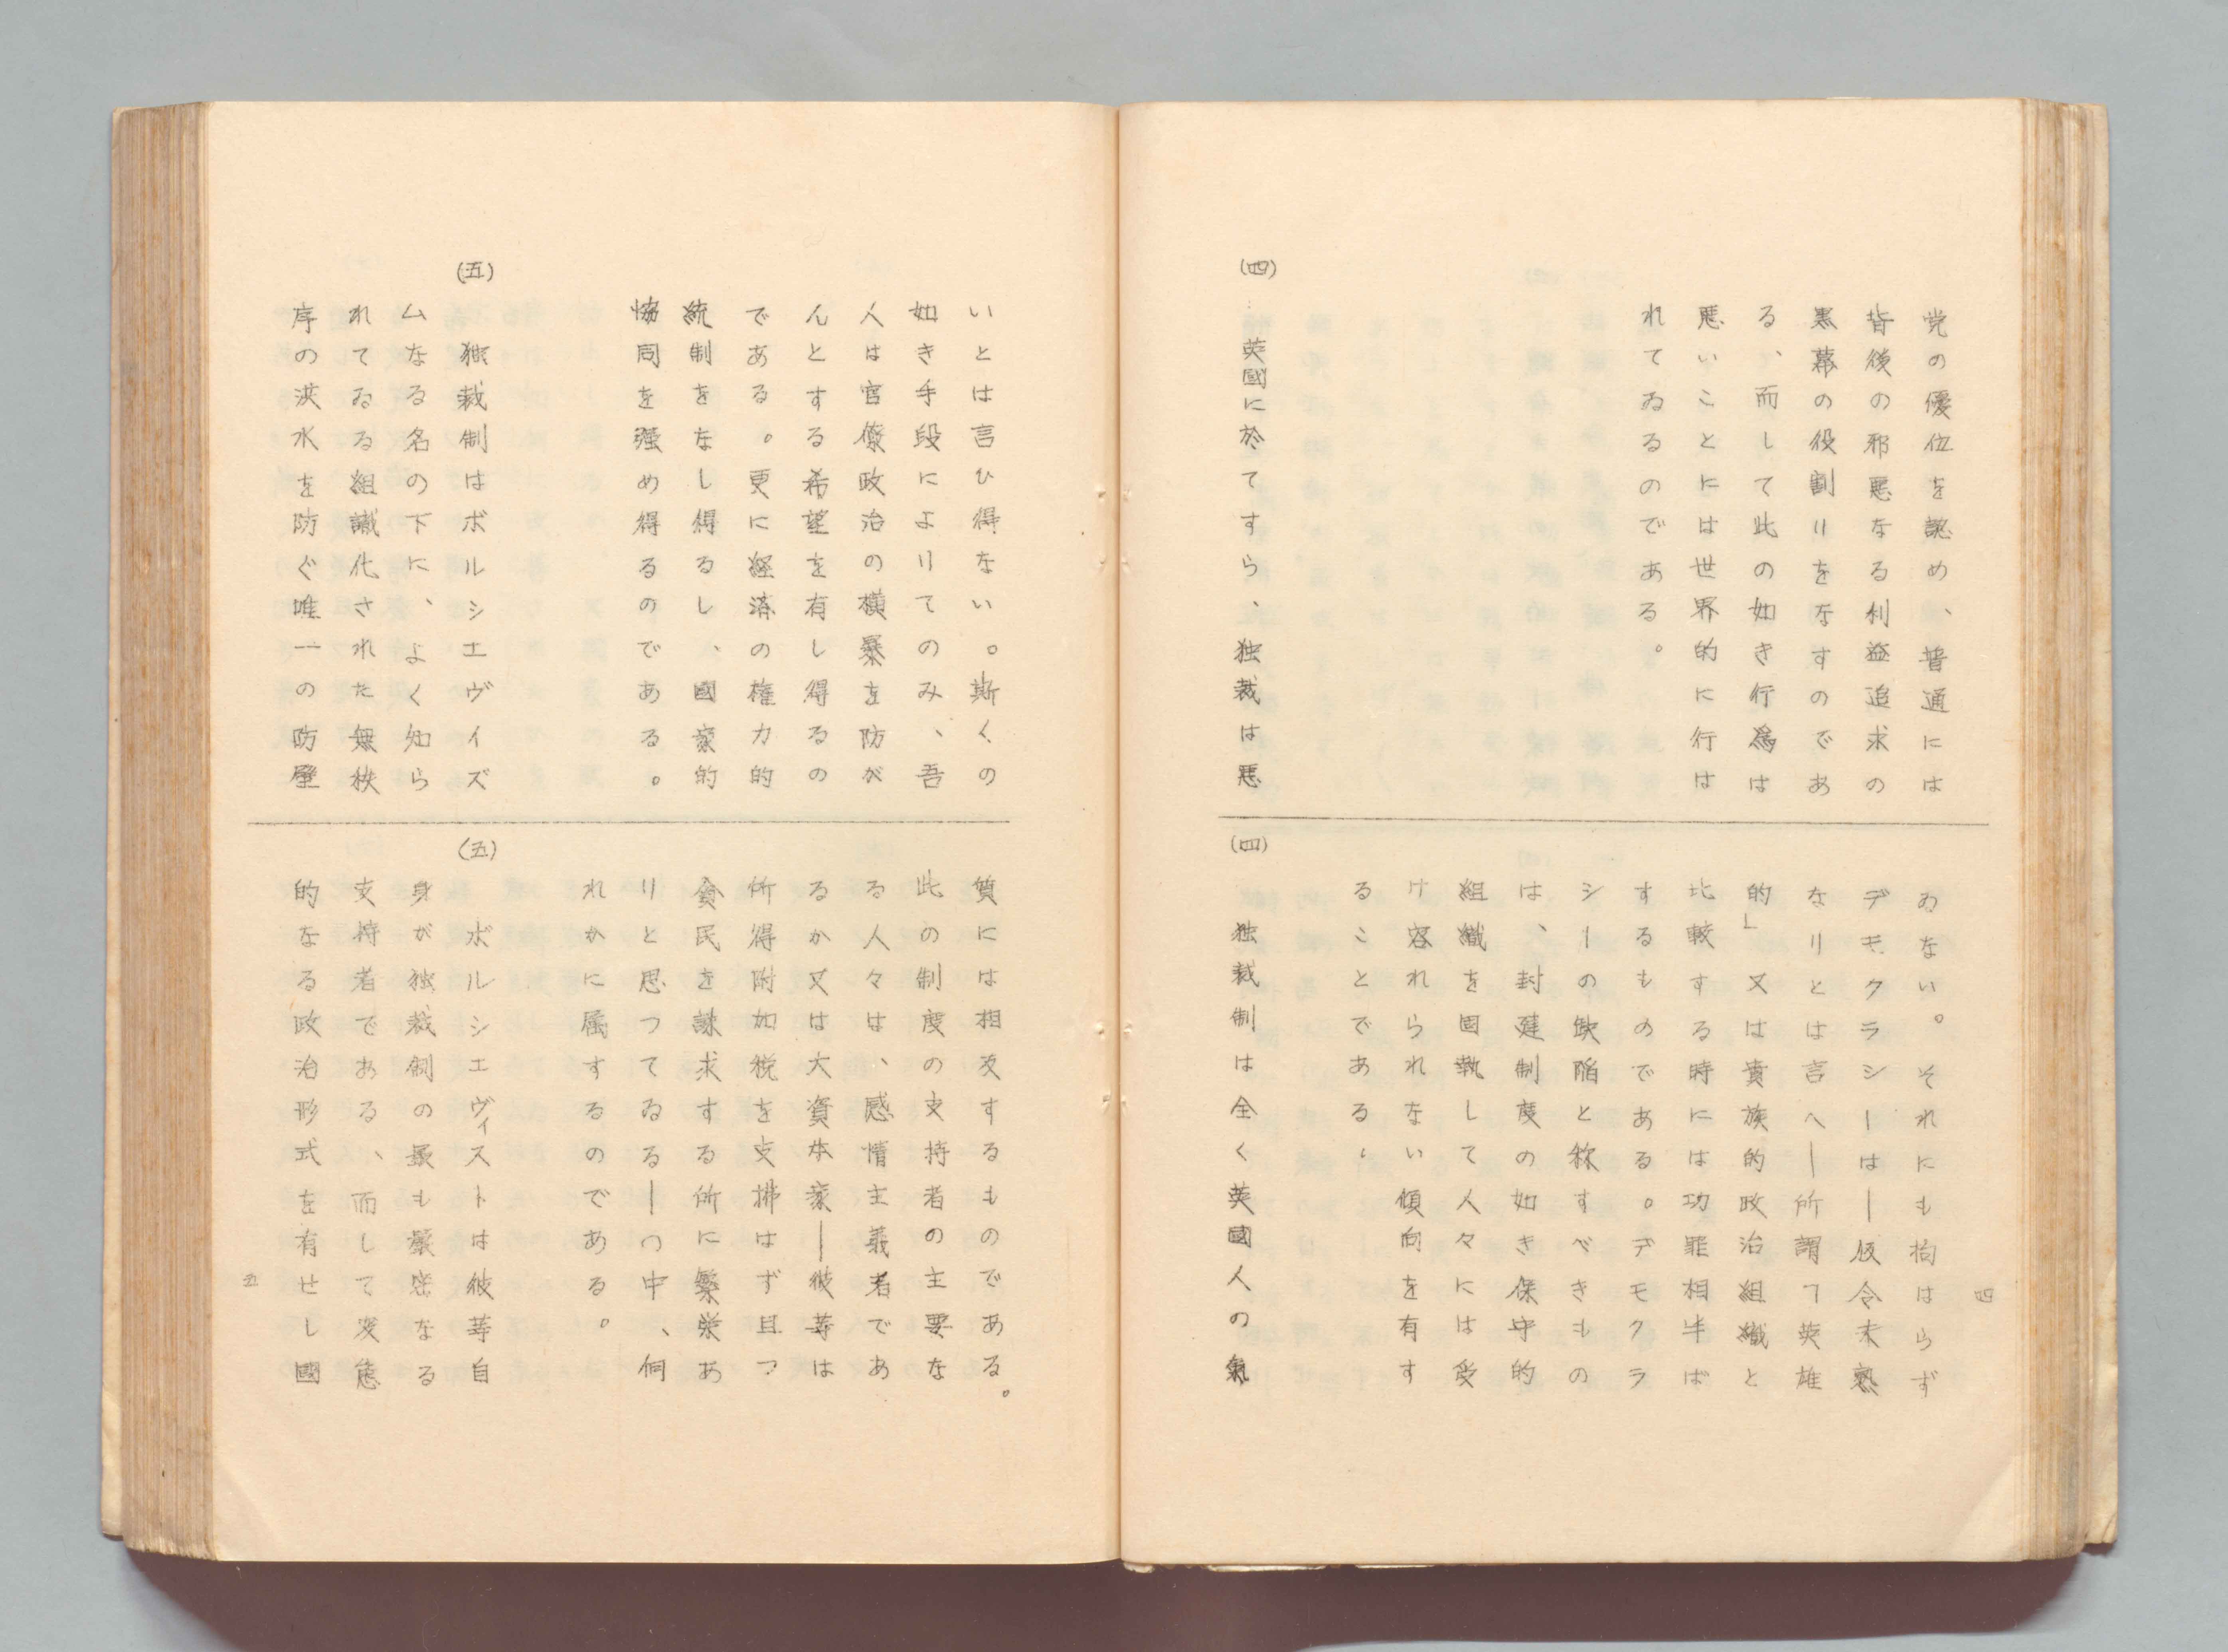 党の優位を認め、普通には
背後の邪悪なる利益追求の
黒幕の役割リをなすのであ
る、而して此の如き行爲は
悪いことには世界的に行は
れてゐるのである。
(四)
英國に於てすら、独裁は悪
ゐない。それにも拘はらず
デモクラシーは—仮令未熟
なりとは言へ—所謂「英雄
的」又は貴族的政治組織と
比較する時には功罪相半ば
するものである。デモクラ
シーの欠陥と称すべきもの
は、封建制度の如き保守的
組織を固執して人々には受
け容れられない傾向を有す
ることである、
(四)
独裁制は全く英國人の氣
四
いとは言ひ得ない。斯くの
如き手段によリてのみ、吾
人は官僚政治の横暴を防が
んとする希望を有し得るの
である。更に経済の権力的
統制をなし得るし、國家的
協同を強め得るのである。
(五)
独裁制はボルシエヴイズ
ムなる名の下に、よく知ら
れてゐる組識化された無秩
序の洪水を防ぐ唯一の防壁
質には相反するものである。
此の制度の支持者の主要な
る人々は、感情主義者であ
るか又は大資本家—彼等は
所得附加税を支拂はず且つ
貧民を誅求する所に繁栄あ
りと思つてゐる—の中、何
れかに属するのである。
(五)
ボルシエヴィストは彼等自
身が独裁制の最も厳密なる
支持者である、而して変態
的なる政治形式を有せし國
五